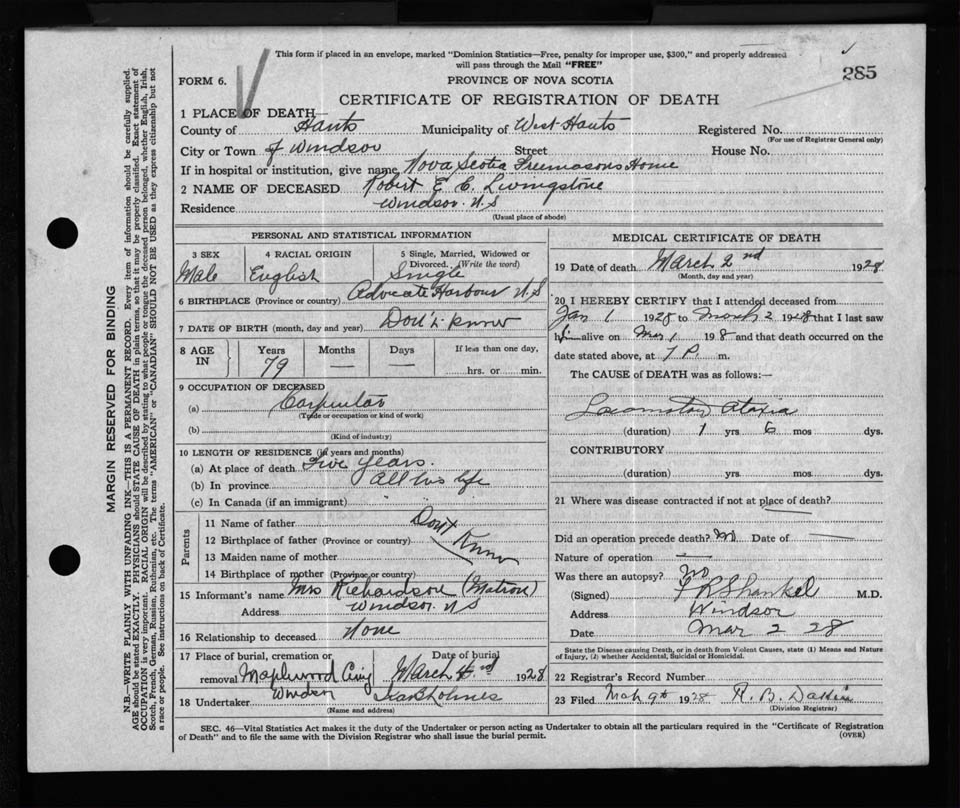 This form if placed in an envelope, marked "Dominion Statistics—Free, penalty for improper use, $300," and properly addressed
will pass through the Mail "FREE"
285
FORM 6.
PROVINCE OF NOVA SCOTIA
CERTIFICATE OF REGISTRATION OF DEATH
1 PLACE OF DEATH
County of Hants Municipality of West Hants Registered No.
(For use of Registrar General only)
City or Town of Windsor Street House No.
If in hospital or institution, give name Nova Scotia Freemasons Home
2 NAME OF DECEASED Robert E. C. Livingstone
Residence Windsor. N.S
(Usual place of abode)
PERSONAL AND STATISTICAL INFORMATION
3 SEX 4 RACIAL ORIGIN 5 Single, Married, Widowed or
Divorced. (Write the word)
Male English Single
6 BIRTHPLACE (Province or country) Advocate Harbour N.S
7 DATE OF BIRTH (month, day and year) Don't know
8 AGE IN Years Months Days If less than one day,
79 — — hrs. or min.
9 OCCUPATION OF DECEASED
(a) Carpenter
(Trade or occupation or kind of work)
(b)
(Kind of industry)
10 LENGTH OF RESIDENCE (in years and months)
(a) At place of death Five years.
(b) In province All his life
(c) In Canada (if an immigrant)
Parents
11 Name of father Don't
12 Birthplace of father (Province or country) Know
13 Maiden name of mother
14 Birthplace of mother (Province or country)
15 Informant's name Mrs Richardson (Matron)
Address Windsor. N.S
16 Relationship to deceased None
17 Place of burial, cremation or Date of burial
removal Maplewood March 1928
Windsor
18 Undertaker
(Name and address)
MEDICAL CERTIFICATE OF DEATH
19 Date of death March 2nd 1928
(Month, day and year)
20 I HEREBY CERTIFY that I attended deceased from
Jan 1 1928 to March 2 1928 that I last saw
him alive on Mar 1 1928 and that death occurred on the
date stated above, at 7 P. m.
The CAUSE of DEATH was as follows:—
Locomotory Ataxia
(duration) 1 yrs 6 mos dys.
CONTRIBUTORY
(duration) yrs. mos. dys.
21 Where was disease contracted if not at place of death?
Did an operation precede death? No Date of —
Nature of operation —
Was there an autopsy? No
(Signed) F R Shankel M.D.
Address Windsor
Date Mar 2 28
State the Disease causing Death, or in death from Violent Causes, state (1) Means and Nature
of Injury, (2) whether Accidental, Suicidal or Homicidal.
22 Registrar's Record Number
23 Filed Mch 9th 1928 A. B. Dakin
(Division Registrar)
SEC. 46—Vital Statistics Act makes it the duty of the Undertaker or person acting as Undertaker to obtain all the particulars required in the "Certificate of Registration
of Death" and to file the same with the Division Registrar who shall issue the burial permit. (OVER)
MARGIN RESERVED FOR BINDING
N.B.—WRITE PLAINLY WITH UNFADING INK—THIS IS A PERMANENT RECORD. Every item of information should be carefully supplied.
AGE should be stated EXACTLY. PHYSICIANS should STATE CAUSE OF DEATH in plain terms, so that it may be properly classified. Exact statement of
OCCUPATION is very important. RACIAL ORIGIN will be described by stating to what people or tongue the deceased person belonged, whether English, Irish,
Scotch, French, German, Russian, Ruthenian, etc. The terms "AMERICAN" or "CANADIAN" SHOULD NOT BE USED as they express citizenship but not
a race or people. See instructions on back of Certificate.